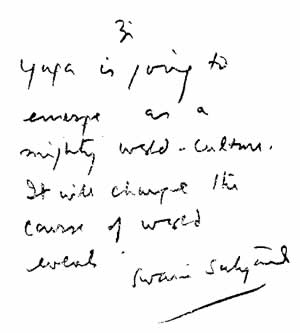 ॐ
Yoga is going to
emerge as a
mighty world-culture.
It will change the
course of world
events
Swami Satyānanda